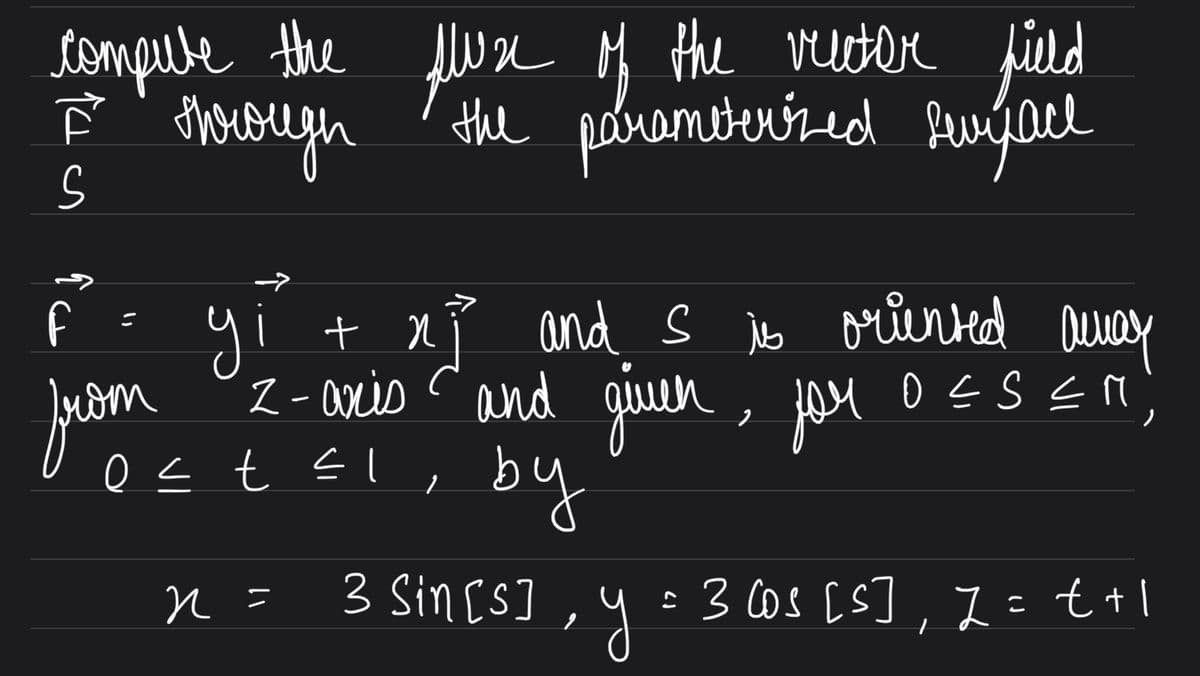 compute the flux of the vector field
F⃗ through the parameterized surface
S
F⃗ = y i⃗ + x j⃗ and S is oriented away
from z-axis and given, for 0 ≤ S ≤ π,
0 ≤ t ≤ 1, by
x = 3 Sin[s], y = 3 Cos [s], z = t+1